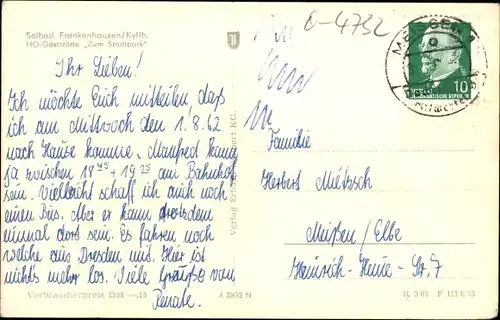 Solbad Frankenhausen/Kyffh.
HO-Gaststätte „Zum Stadtpark"
Ihr Lieben!
Ich möchte Euch mitteilen, daß
ich am Mittwoch den 1.8.62
nach Hause komme. Manfred kann
ja zwischen 18 45 + 19 25 am Bahnhof
sein. Vielleicht schaff ich auch noch
einen Bus. Aber er kann trotzdem
einmal dort sein. Es fahren noch
welche aus Dresden mit. Hier ist
nichts mehr los. Viele Grüße von
Renate.
Verbraucherpreis DM -,15
A 3892 N
Verlag Erhard Neubert KG,
6-4732
10
DEUTSCHE DEMOKRATISCHE REPUBLIK
Familie
Herbert Mietzsch
Meißen/Elbe
Heinrich-Heine-Str. 7
K 3/61 F